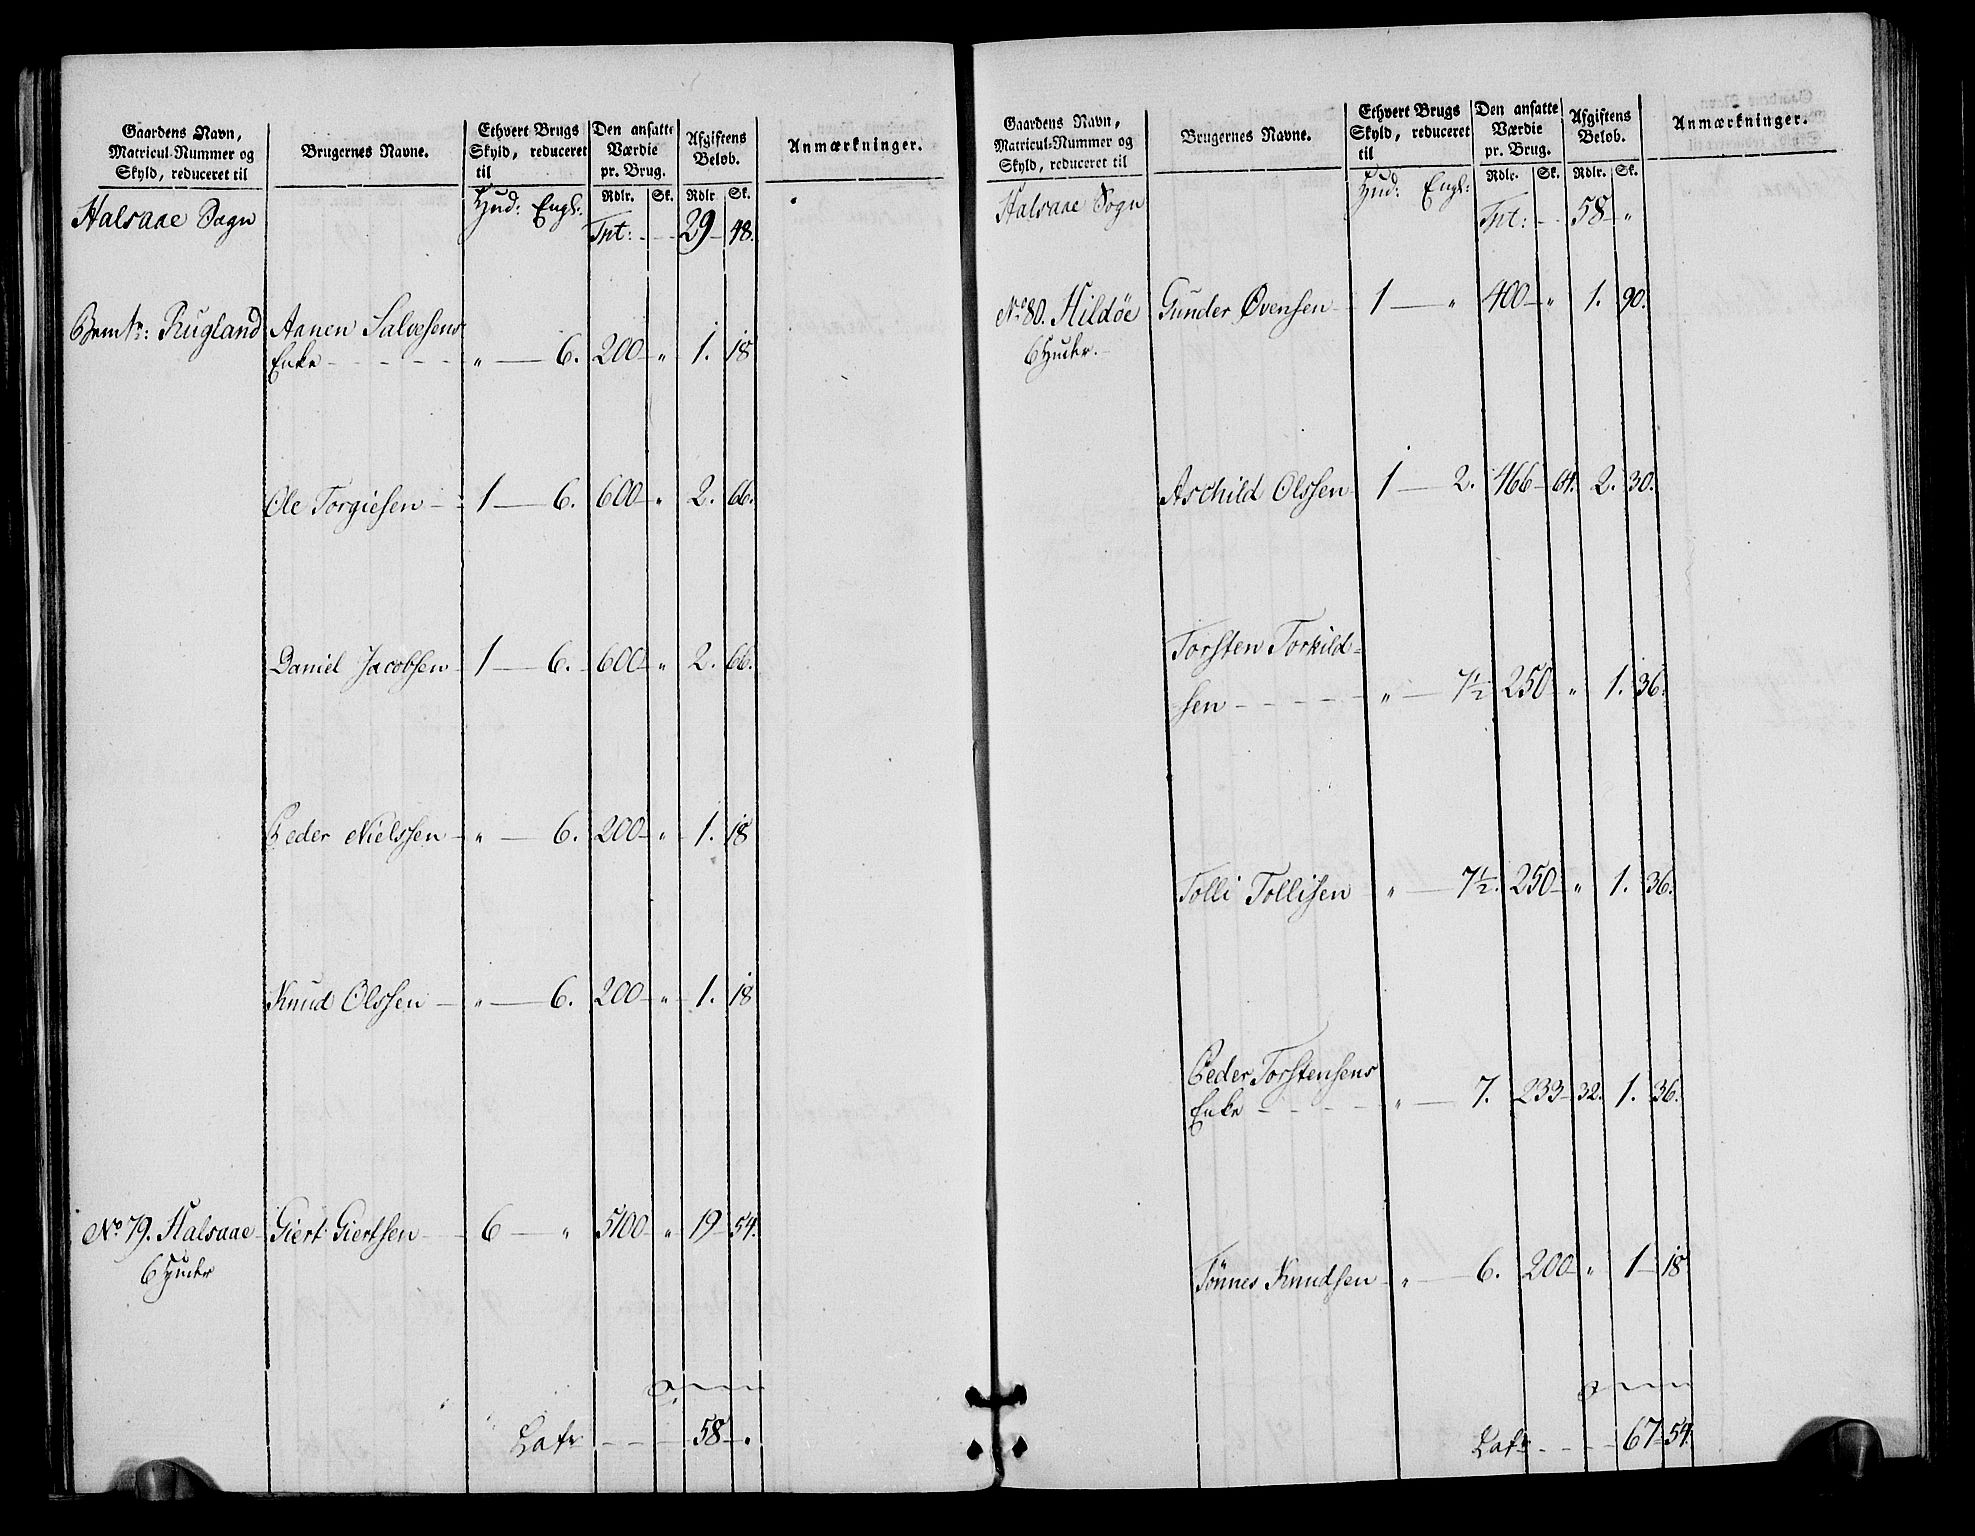 Gaardens Navn, Matricul-Nummer og Skyld, reduceret til | Brugernes Navne. | Ethvert Brugs Skyld, reduceret til | Den ansatte Værdie pr. Brug. | Afgiftens Beløb. | Anmærkninger.
Hud: Engl: | Rdlr. Sk. | Rdlr. Sk.
Halsaae Sogn Tpt: 29 48.
Rugland Aanen Salvesens
Enke " 6. 200 " 1. 18
Ole Torgiesen 1 6. 600 " 2. 66.
Daniel Jacobsen 1 6. 600 " 2. 66.
Peder Nielssen " 6. 200 " 1. 18
Knud Olssen " 6. 200 " 1. 18
No 79. Halsaae Giert Giertsen 6 " 5100 " 19 54.
6 Huder
Lats 58 .
Gaardens Navn, Matricul-Nummer og Skyld, reduceret til | Brugernes Navne. | Ethvert Brugs Skyld, reduceret til | Den ansatte Værdie pr. Brug. | Afgiftens Beløb. | Anmærkninger.
Hud: Engl: | Rdlr. Sk. | Rdlr. Sk.
Halsaae Sogn Tpt: 58 "
No 80. Hildøe Gunder Øvensen 1 " 400 " 1. 90.
6 Huder.
Aschild Olssen 1 2. 466 64. 2. 30.
Torsten Torkild-
sen " 7½ 250 " 1. 36.
Tolli Tollisen " 7½. 250 " 1. 36.
Peder Torstensens
Enke " 7. 233 32. 1. 36.
Tönnes Knudsen " 6. 200 " 1 18
Lats 67 54